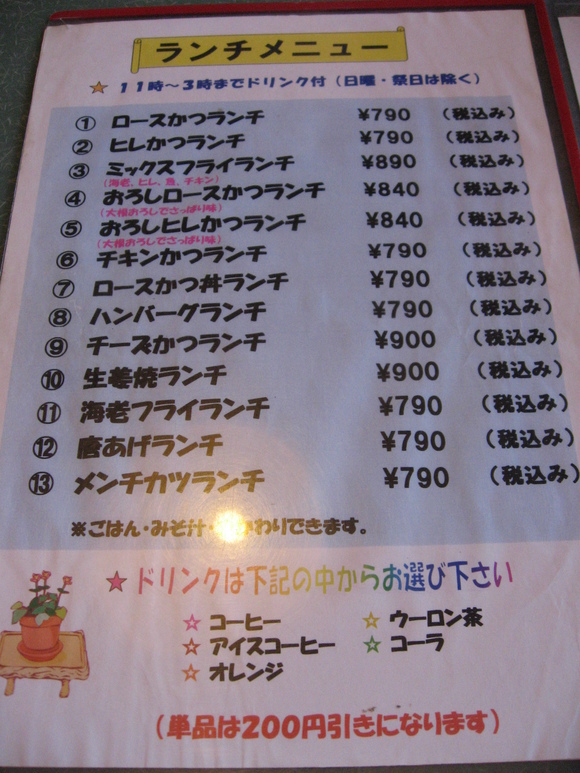 ランチメニュー
☆ 11時～3時までドリンク付（日曜・祭日は除く）
① ロースかつランチ ¥790 （税込み）
② ヒレかつランチ ¥790 （税込み）
③ ミックスフライランチ ¥890 （税込み）
（海老、ヒレ、魚、チキン）
④ おろしロースかつランチ ¥840 （税込み）
（大根おろしでさっぱり味）
⑤ おろしヒレかつランチ ¥840 （税込み）
（大根おろしでさっぱり味）
⑥ チキンかつランチ ¥790 （税込み）
⑦ ロースかつ丼ランチ ¥790 （税込み）
⑧ ハンバーグランチ ¥790 （税込み）
⑨ チーズかつランチ ¥900 （税込み）
⑩ 生姜焼ランチ ¥900 （税込み）
⑪ 海老フライランチ ¥790 （税込み）
⑫ 唐あげランチ ¥790 （税込み）
⑬ メンチカツランチ ¥790 （税込み）
※ごはん・みそ汁・わりできます。
★ドリンクは下記の中からお選び下さい
☆ コーヒー ☆ ウーロン茶
☆ アイスコーヒー ☆ コーラ
☆ オレンジ
（単品は200円引きになります）